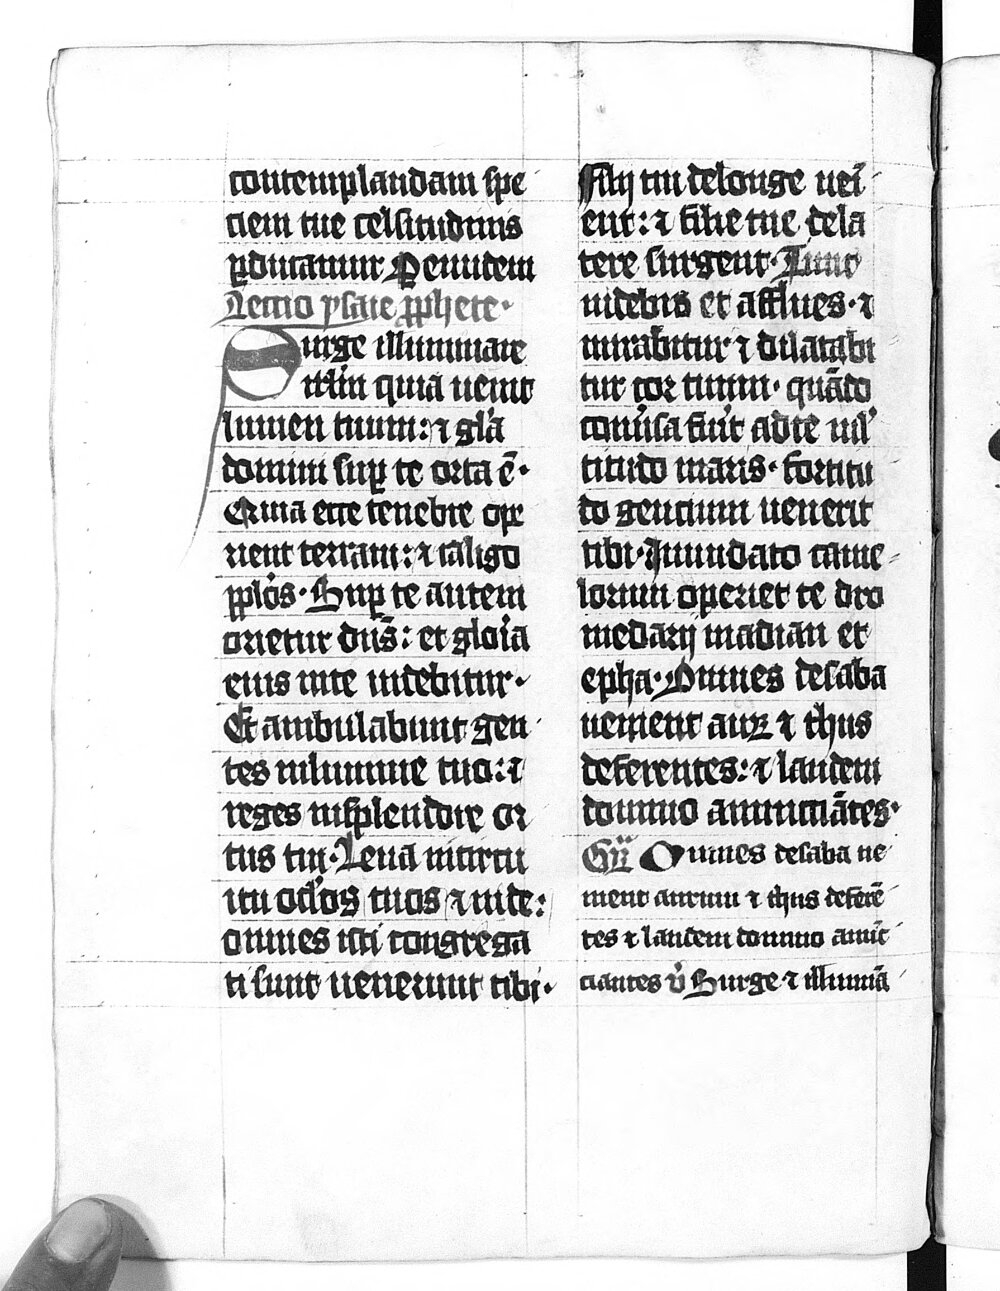 contemplandam spe
ciem tue celsitudinis
ꝑducamur Per eundem
Lectio ysaie ꝓphete·
Surge illuminare
irl̄m quia uenit
lumen tuum: ⁊ gl̄a
domini suꝑ te orta ē·
Quia ecce tenebre ope
rient terram: ⁊ caligo
ppl̄os· Suꝑ te autem
orietur dn̄s: et gloīa
eius in te uidebitur·
Et ambulabunt gen
tes in lumine tuo: ⁊
reges in splendore or
tus tui· Leua in circu
itu oc̄los tuos ⁊ uide:
omnes isti congrega
ti sunt uenerunt tibi·
Filij tui de longe ueī
ent: ⁊ filie tue de la
tere surgent· Tunc
uidebis et afflues· ⁊
mirabitur ⁊ dilatabi
tur cor tuum· quādo
conūsa fūit ad te ml̄
titudo maris· fortitu
do gentium uenerit
tibi· Inundato came
lorum operiet te dro
medarij madian et
epha· Omnes de saba
uenient auꝝ ⁊ thus
deferentes: ⁊ laudem
domino annunciātes·
Gr̄ Omnes de saba ue
nient aurum ⁊ thus deferē
tes ⁊ laudem domino anūc
ciantes v̄ Surge ⁊ illuminā